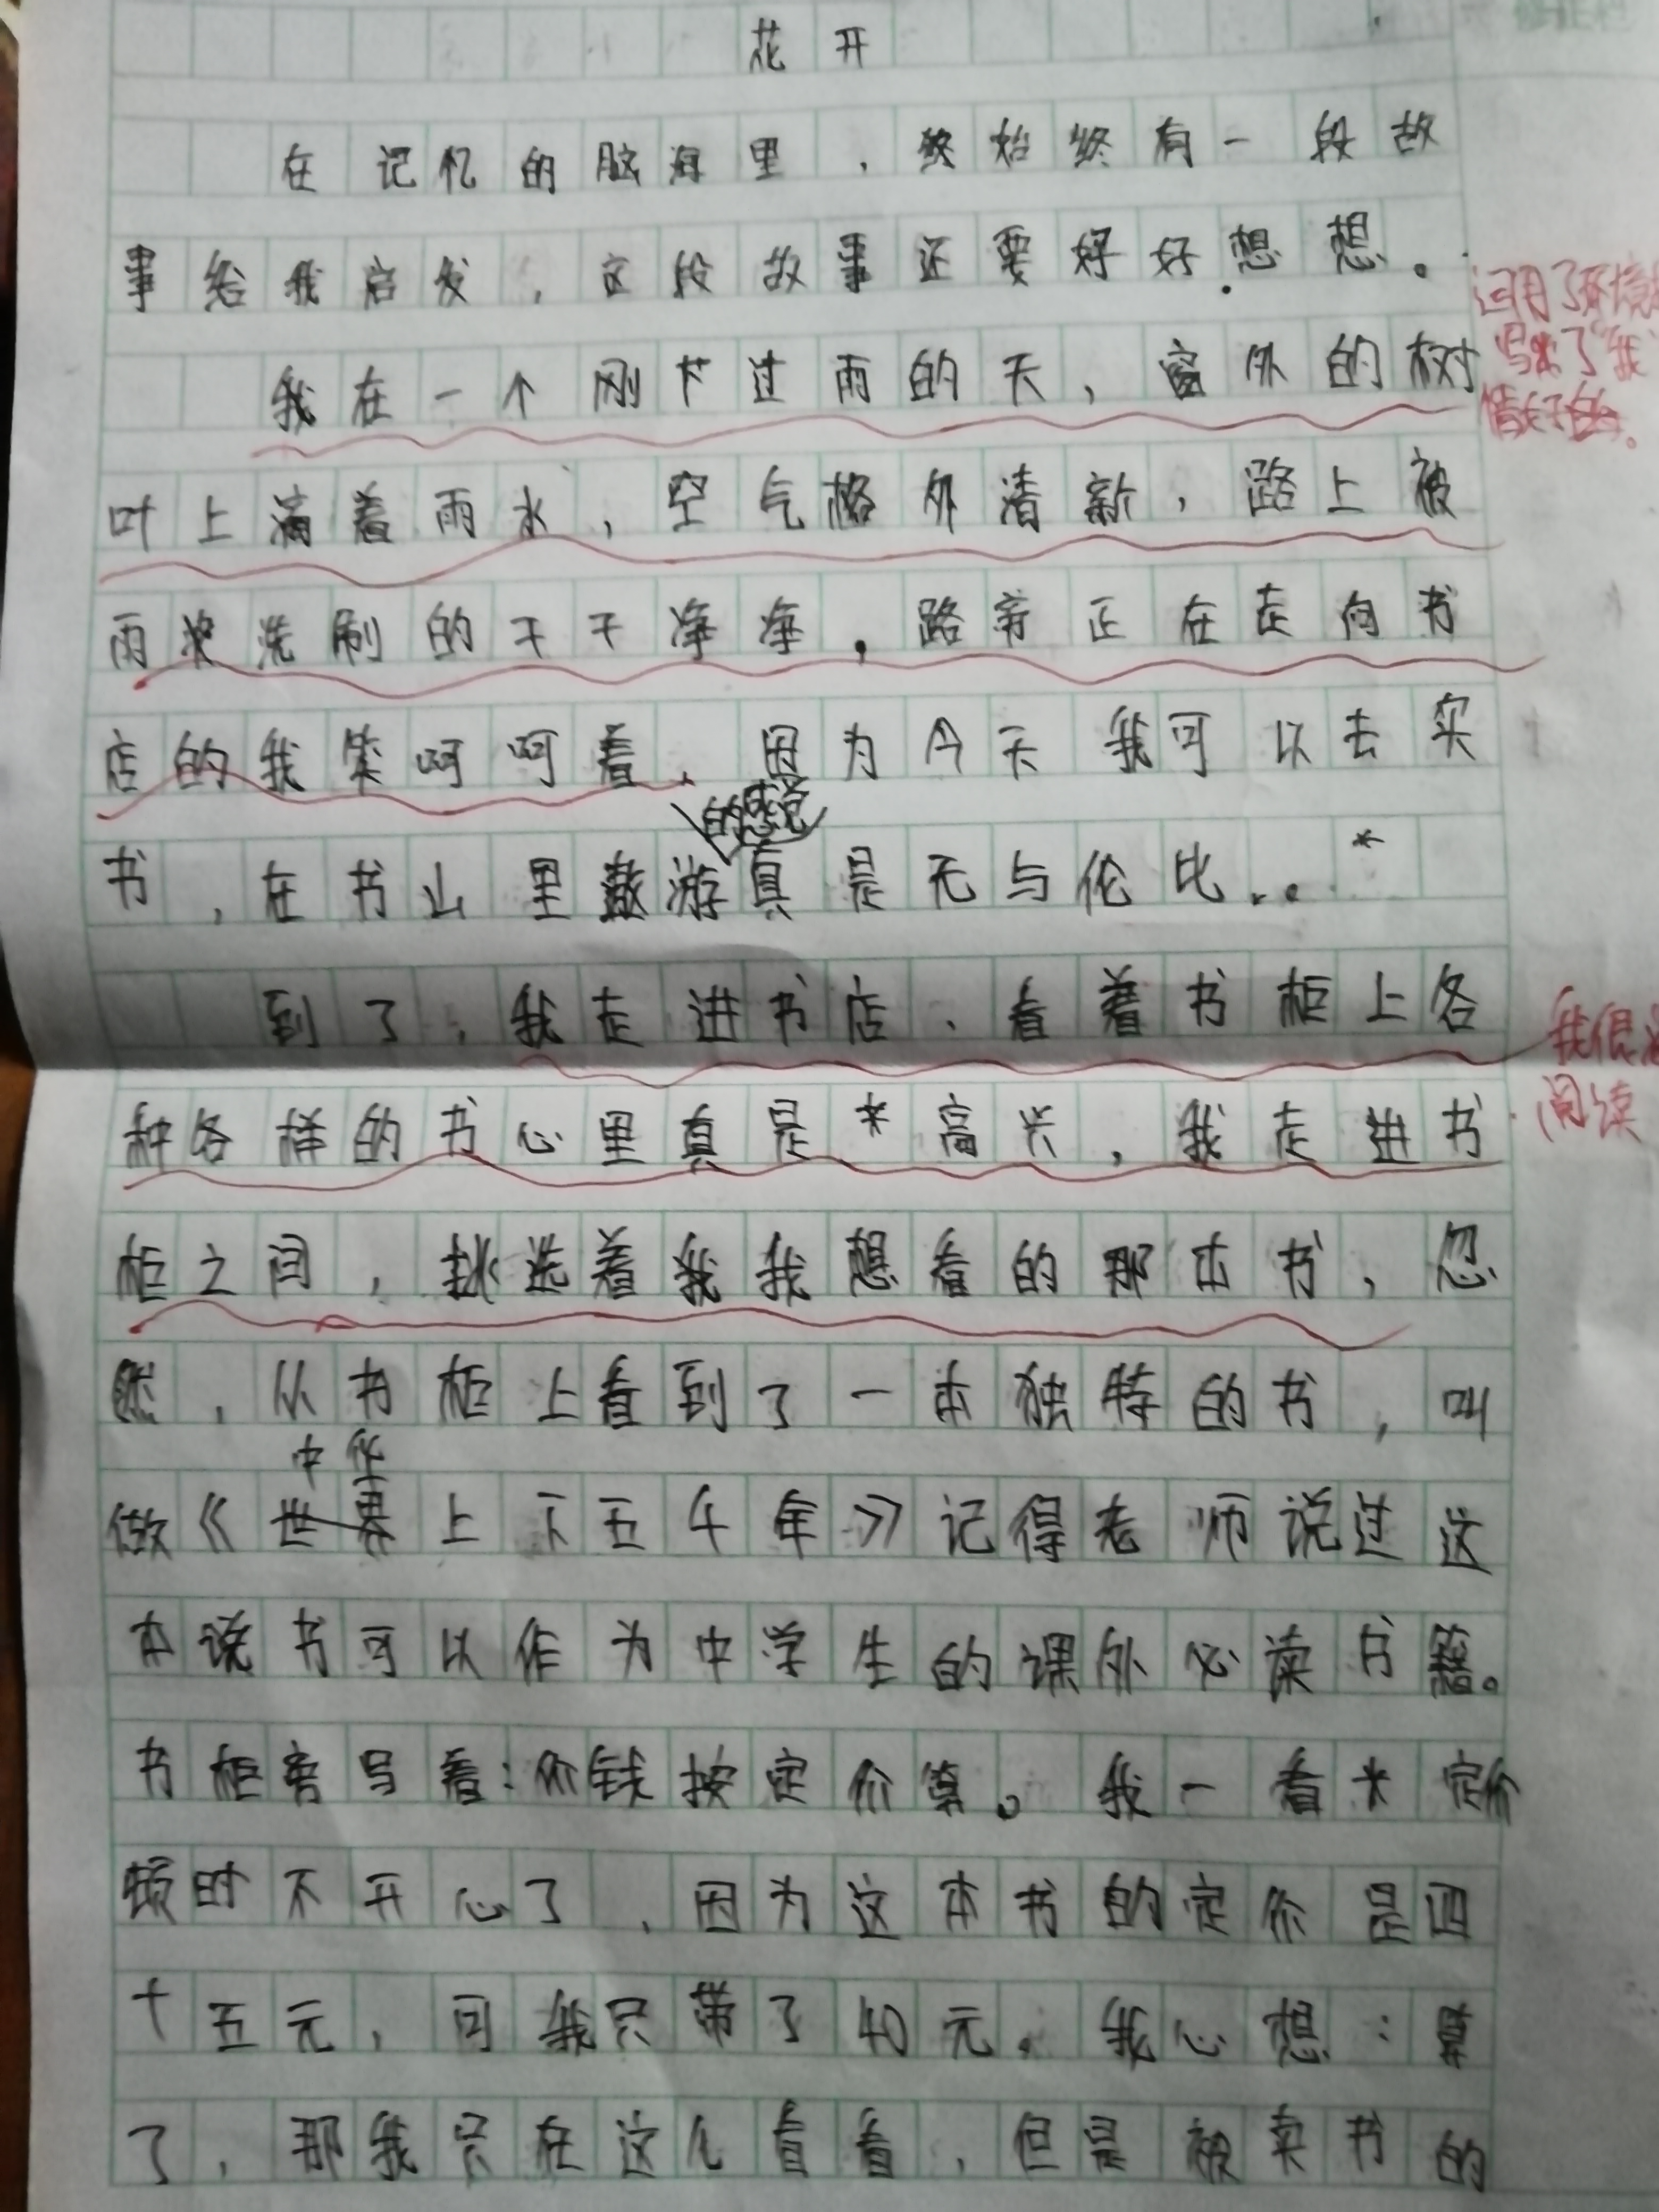 花开
在记忆的脑海里，终始终有一段故
事给我启发，这段故事还要好好想想。
我在一个刚下过雨的天，窗外的树
叶上滴着雨水，空气格外清新，路上被
雨浆洗刷的干干净净，路旁正在走向书
店的我笑呵呵着，因为今天我可以去买
的感觉
书，在书山里遨游真是无与伦比。
到了，我走进书店，看着书柜上各
种各样的书心里真是高兴，我走进书
柜之间，挑选着我我想看的那本书，忽
然，从书柜上看到了一本独特的书，叫
中华
做《世界上下五千年》记得老师说过这
本说书可以作为中学生的课外必读书籍。
书柜旁写着：价钱按定价算。我一看定价
顿时不开心了，因为这本书的定价是四
十五元，可我只带了40元。我心想：算
了，那我只在这儿看看，但是被卖书的
运用了环境
写出了“我”
情好的。
我很
阅读